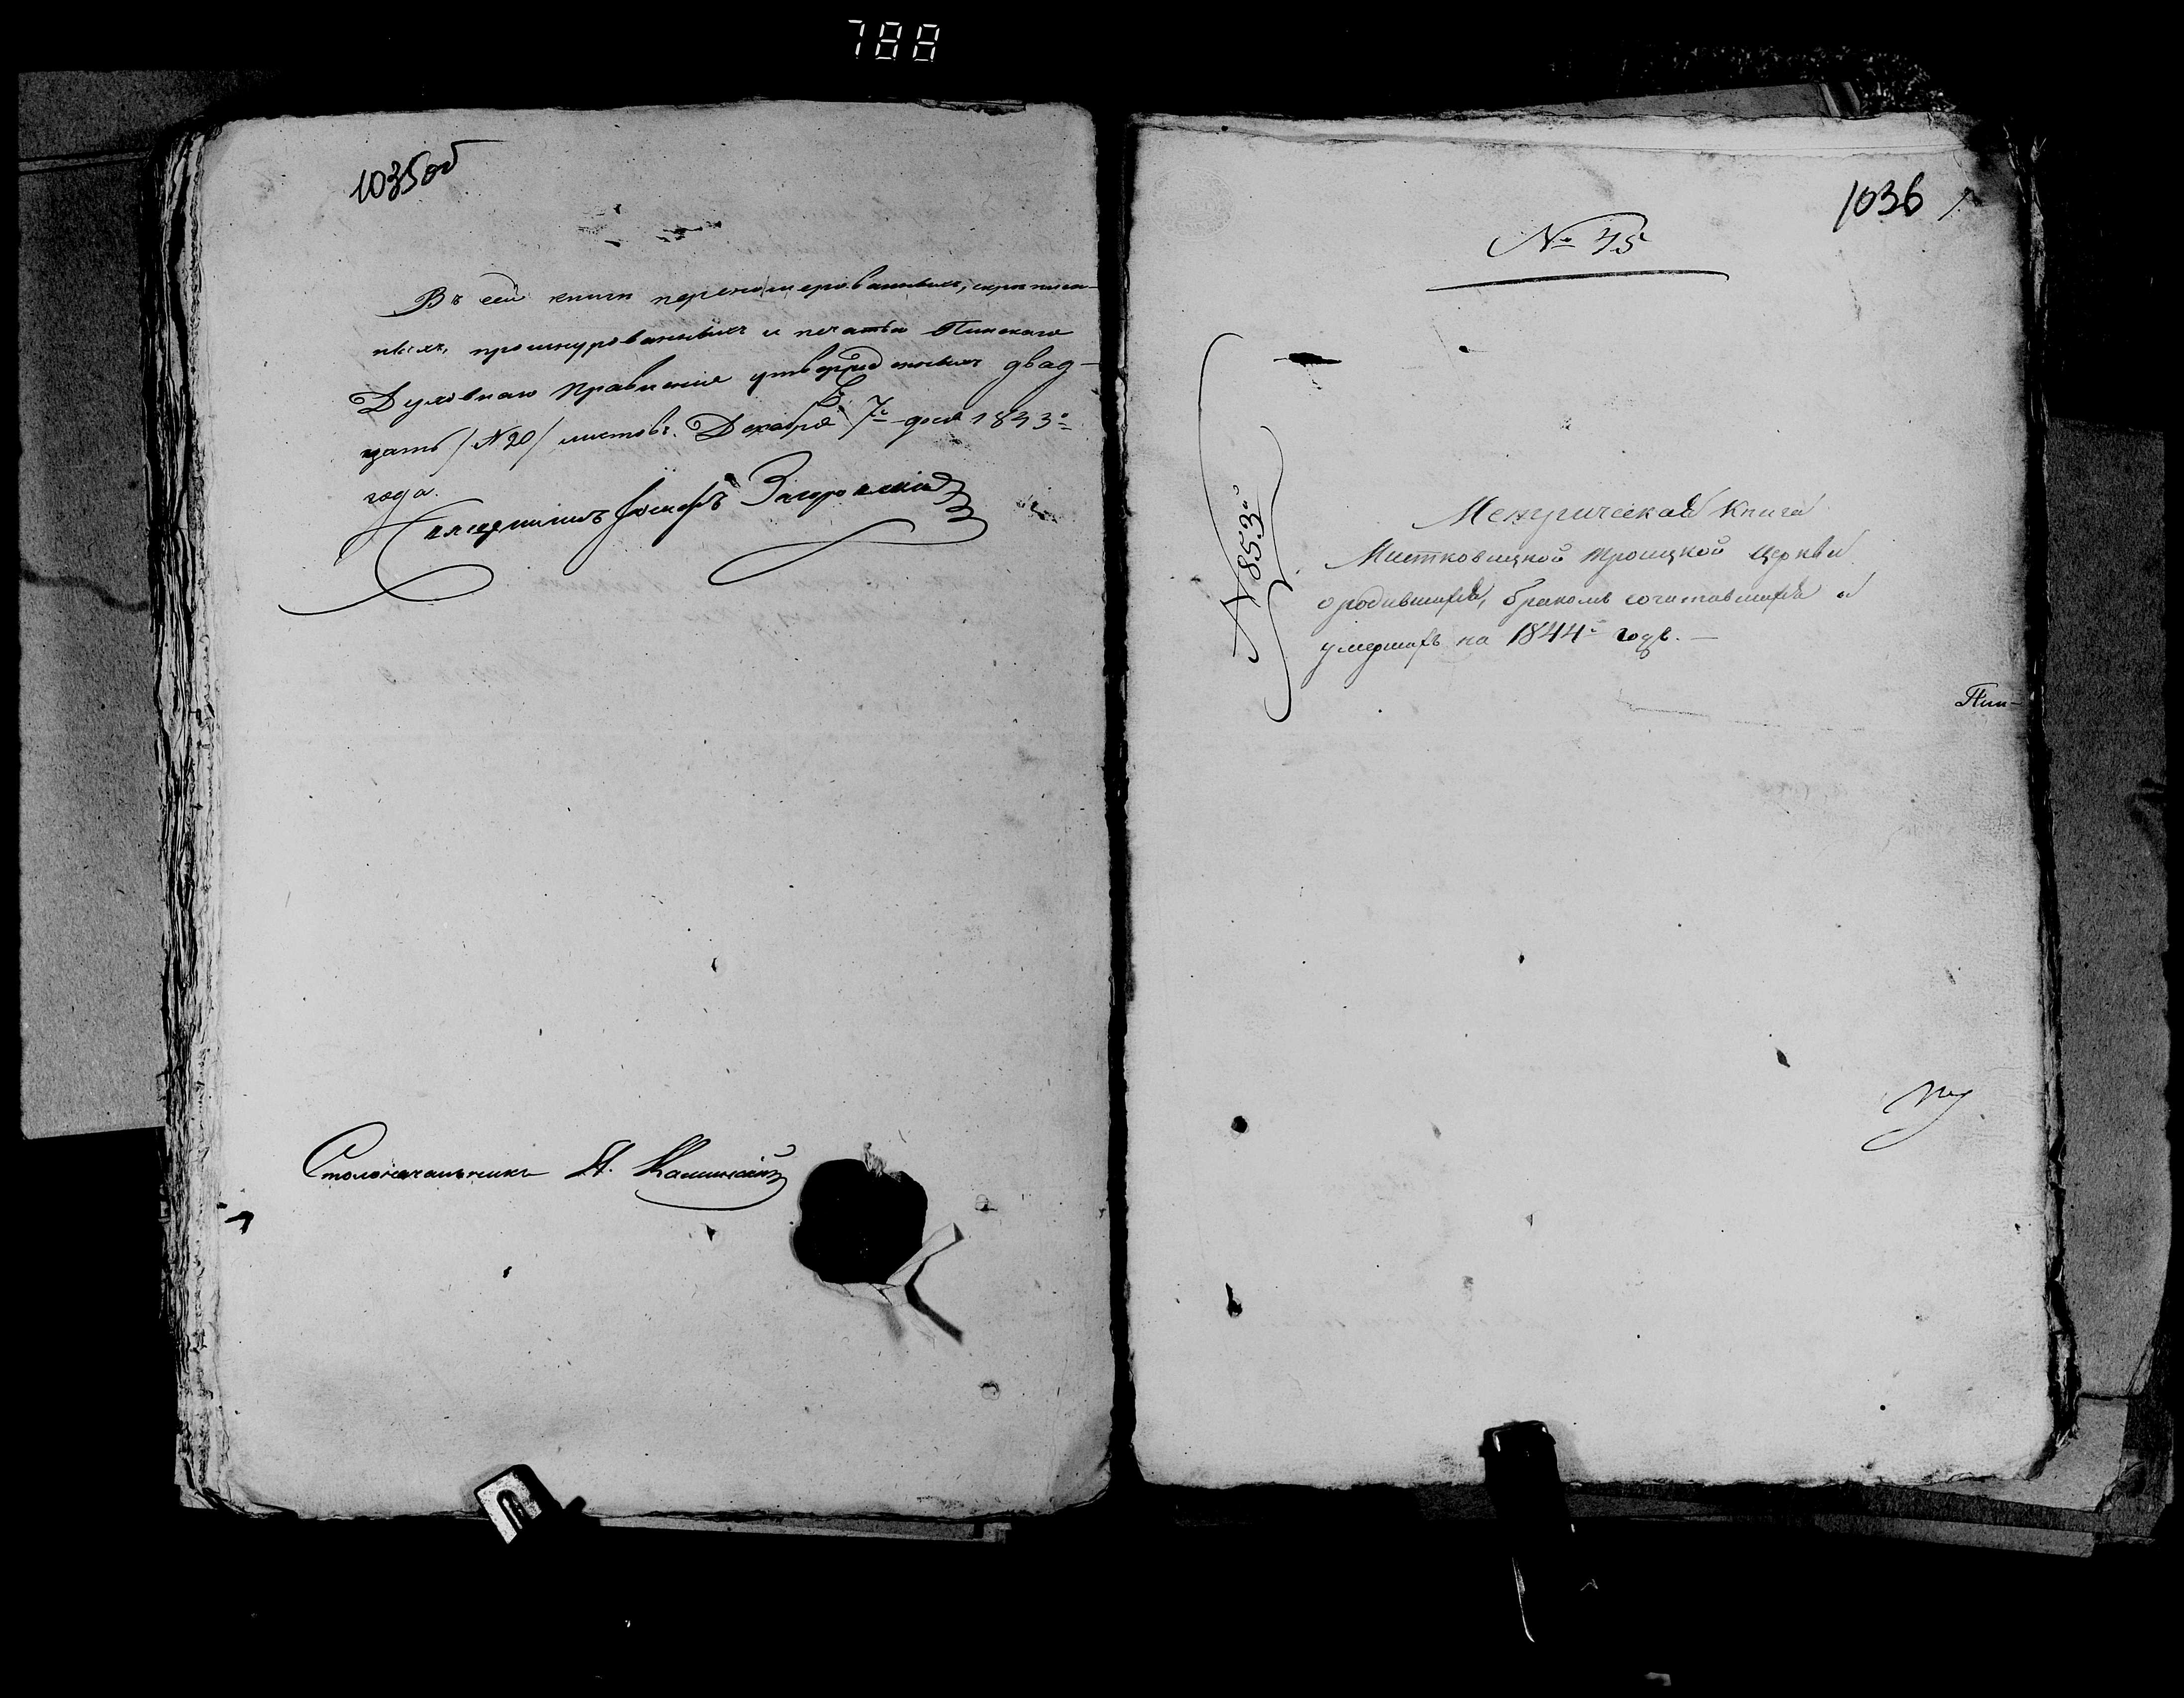 788
1035об
Въ сей книги перенумерованныхъ, скрѣпленныхъ,
прошнурованныхъ и печатью Пинскаго
Духовнаго Правленія утвержденныхъ двад-
цать /N 20/ листовъ. Декабря 7го дня 1843го
года.
Священникъ Іосифъ
Столоначальникъ А. Калинскій
1036
№ 45
N 853й
Метрическая Книга
Мистковицкой Троицкой Церкви
о родившихся, бракомъ сочитавшихся и
умершихъ на 1844й годъ. —
Пин-